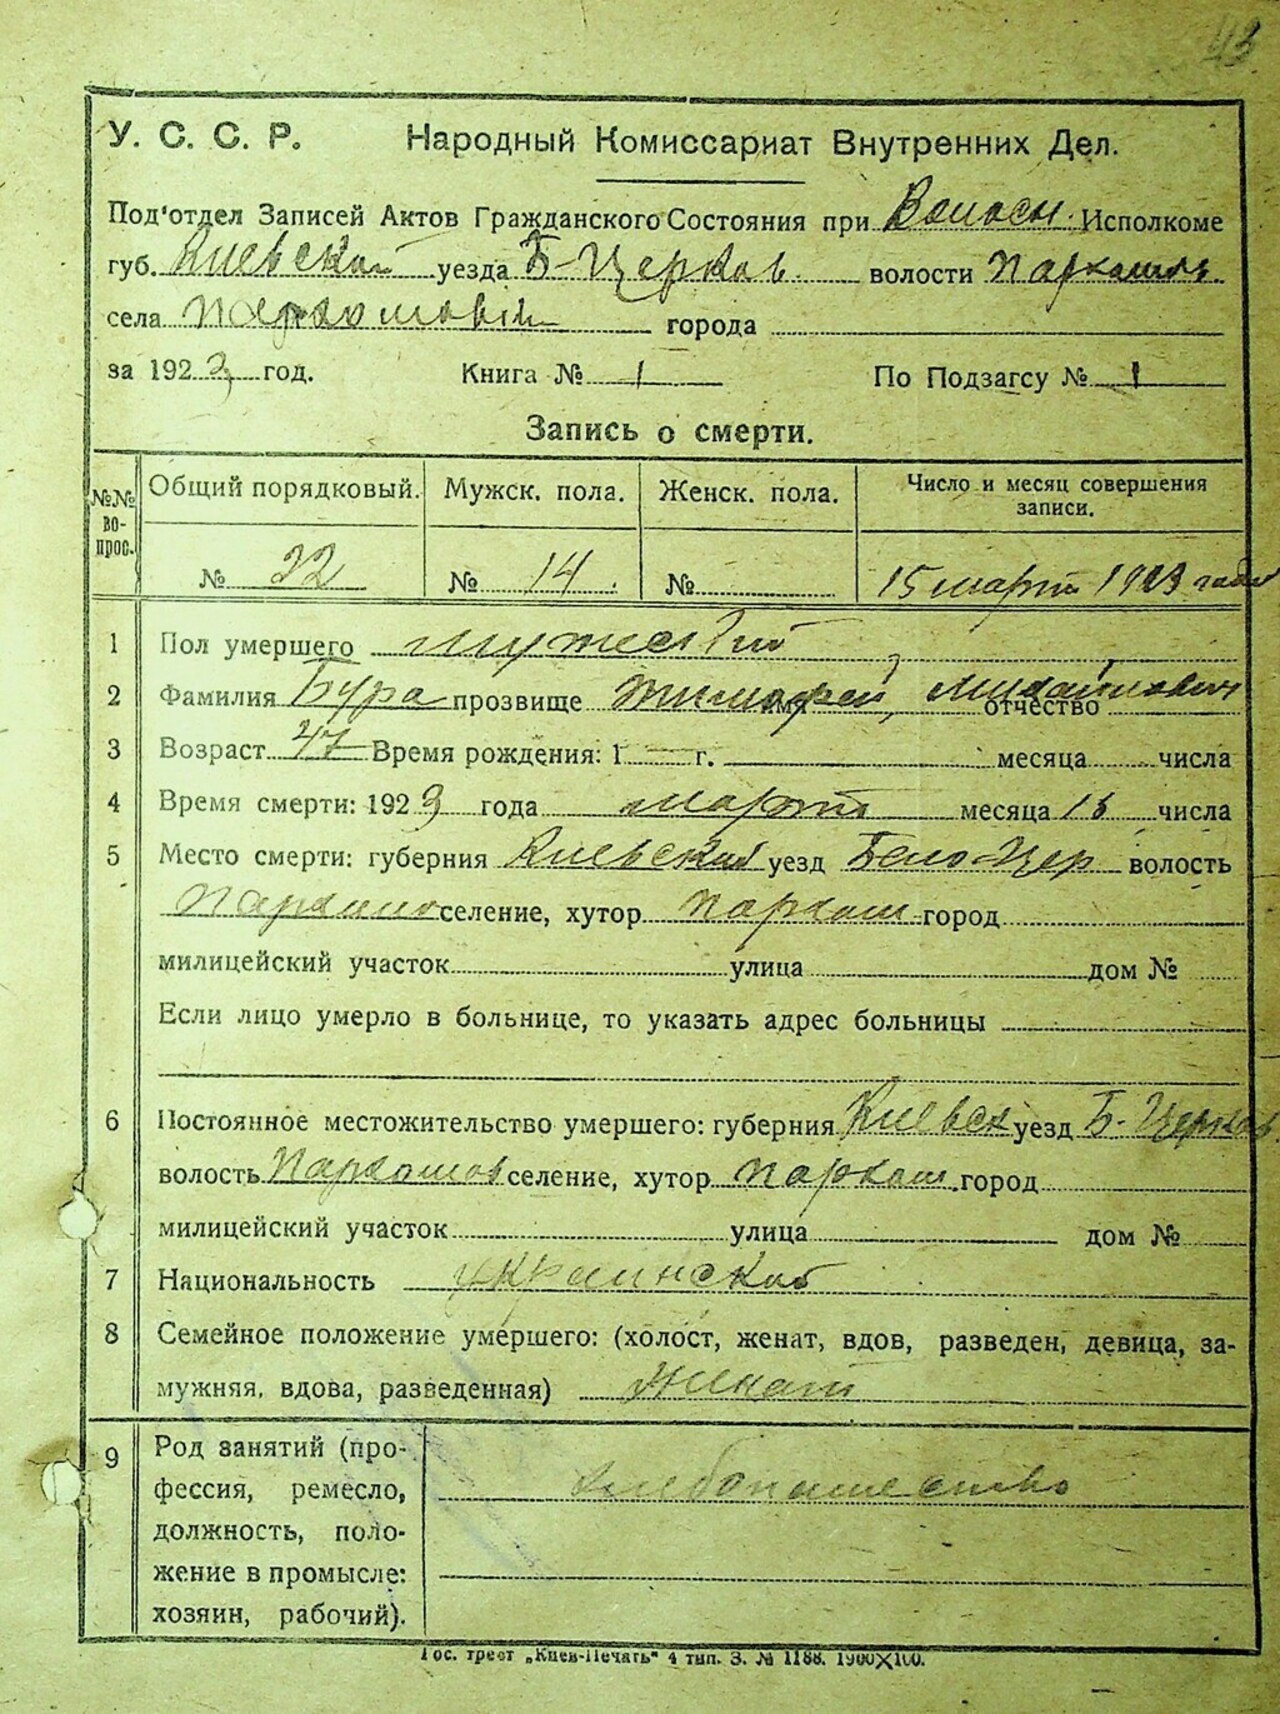 43
У. С. С. Р. Народный Комиссариат Внутренних Дел.
Под'отдел Записей Актов Гражданского Состояния при Волосн. Исполкоме
губ. Киевской уезда Б-Церков. волости Пархомов.
села Пархомовки города
за 1923 год. Книга № 1 По Подзагсу № 1
Запись о смерти.
№№ во-прос. Общий порядковый. Мужск. пола. Женск. пола. Число и месяц совершения
записи.
№ 22 № 14. № 15 марта 1923 года
1 Пол умершего мужеский
2 Фамилия Бура прозвище имя Тимофей, отчество Михайлович
3 Возраст 47 Время рождения: 1 — г. месяца числа
4 Время смерти: 1923 года марта месяца 15 числа
5 Место смерти: губерния Киевской уезд Бело-Цер волость
Пархомо селение, хутор Пархом. город
милицейский участок улица дом №
Если лицо умерло в больнице, то указать адрес больницы
6 Постоянное местожительство умершего: губерния Киевск уезд Б-Церков
волость Пархомов селение, хутор Пархом. город
милицейский участок улица дом №
7 Национальность украинской
8 Семейное положение умершего: (холост, женат, вдов, разведен, девица, за-
мужняя, вдова, разведенная) женат
9 Род занятий (про-
фессия, ремесло, хлебопашество
должность, поло-
жение в промысле:
хозяин, рабочий).
Гос. трест „Киев-Печать" 4 тип. З. № 1188. 1900×100.